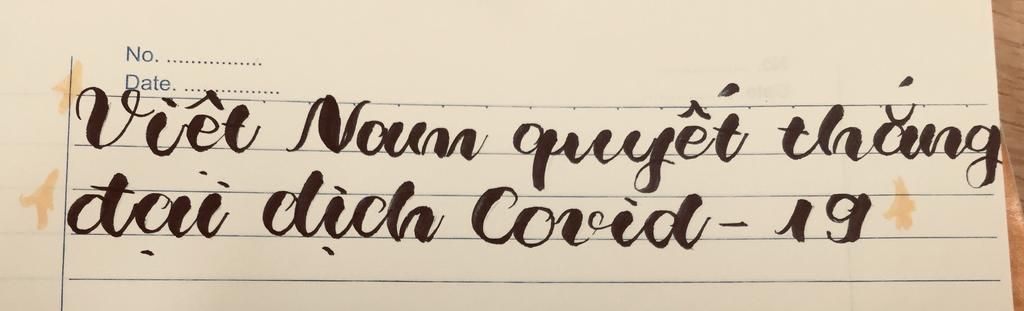 No. ................
Date. ................
Viêt Nam quyết thắng
đại dịch Covid-19